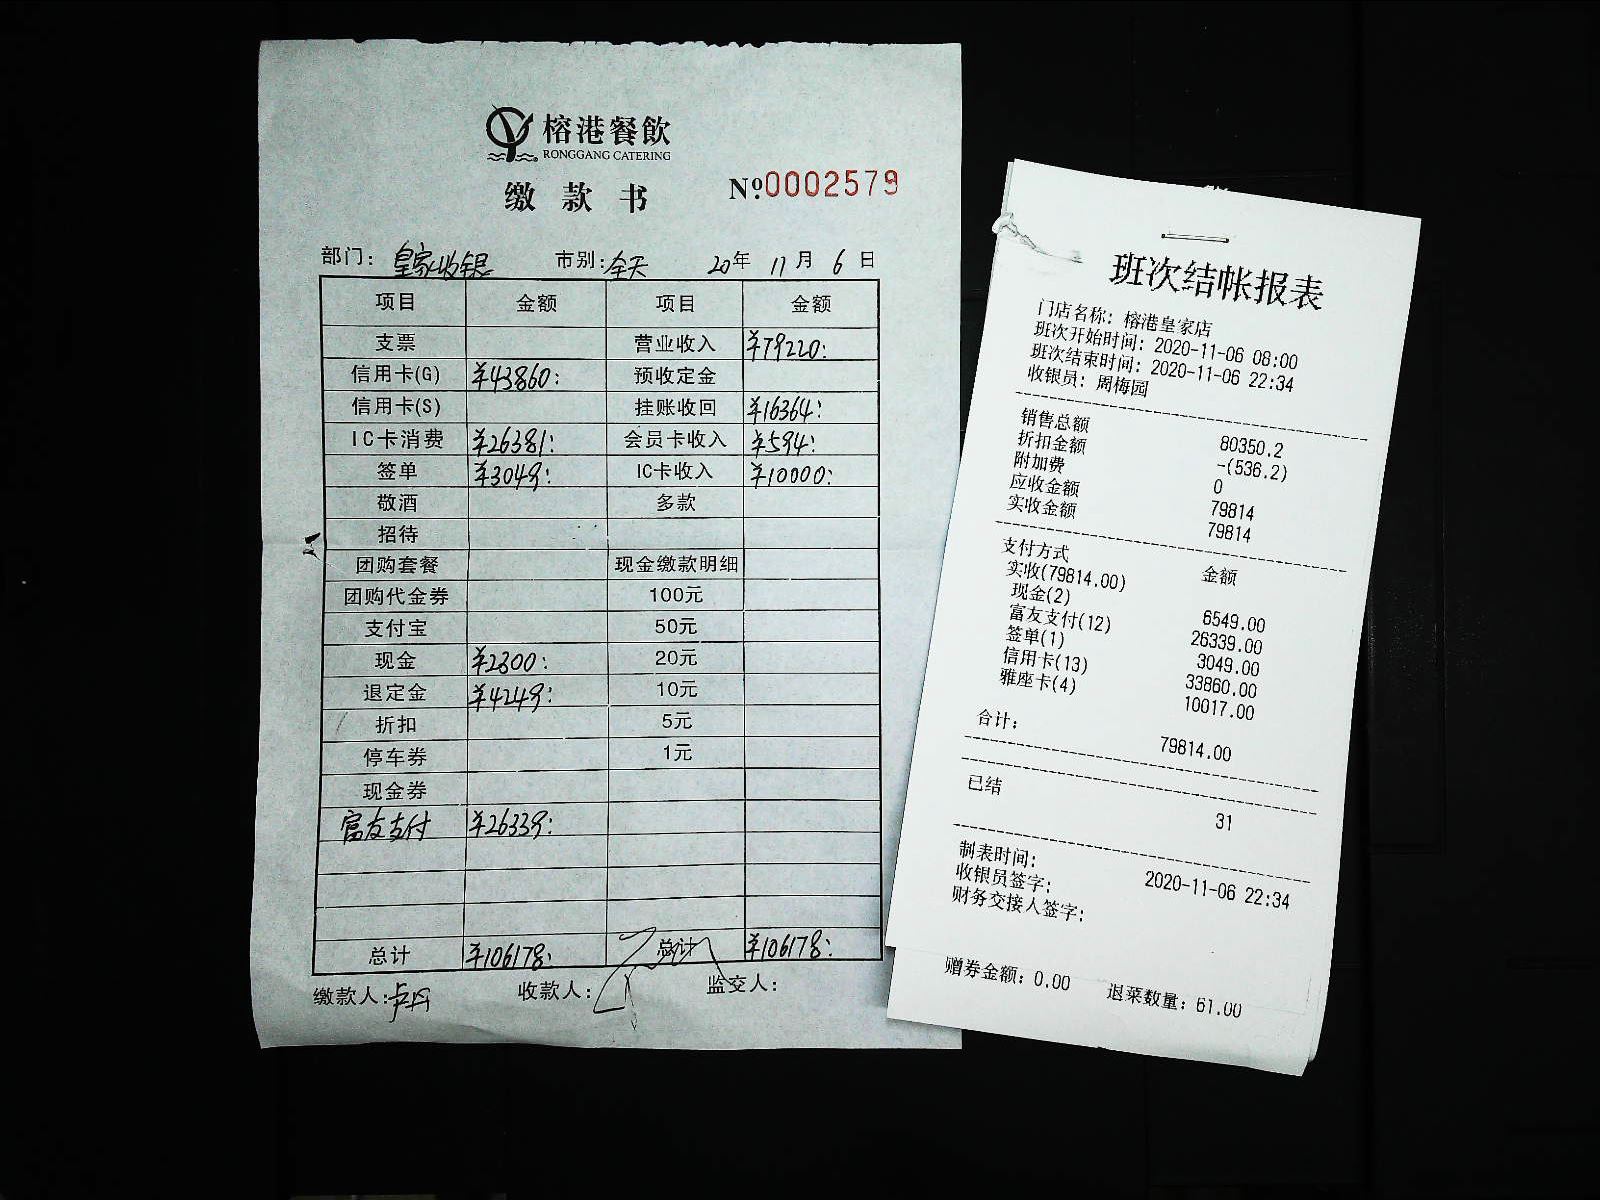 榕港餐飲
RONGGANG CATERING
缴款书 Nº0002579
部门：皇家收银 市别：全天 20年 11月 6日
项目 金额 项目 金额
支票 营业收入 ¥79220:
信用卡(G) ¥43860: 预收定金
信用卡(S) 挂账收回 ¥16364:
IC卡消费 ¥26381: 会员卡收入 ¥594:
签单 ¥3049: IC卡收入 ¥10000:
敬酒 多款
招待
团购套餐 现金缴款明细
团购代金券 100元
支付宝 50元
现金 ¥2300: 20元
退定金 ¥4249: 10元
折扣 5元
停车券 1元
现金券
富友支付 ¥26339:
总计 ¥106178: 总计 ¥106178:
缴款人：卢丹 收款人： 监交人：
班次结帐报表
门店名称：榕港皇家店
班次开始时间：2020-11-06 08:00
班次结束时间：2020-11-06 22:34
收银员：周梅园
销售总额 80350.2
折扣金额 -(536.2)
附加费 0
应收金额 79814
实收金额 79814
支付方式 金额
实收(79814.00)
现金(2) 6549.00
富友支付(12) 26339.00
签单(1) 3049.00
信用卡(13) 33860.00
雅座卡(4) 10017.00
合计： 79814.00
已结 31
制表时间： 2020-11-06 22:34
收银员签字：
财务交接人签字：
赠券金额：0.00 退菜数量：61.00